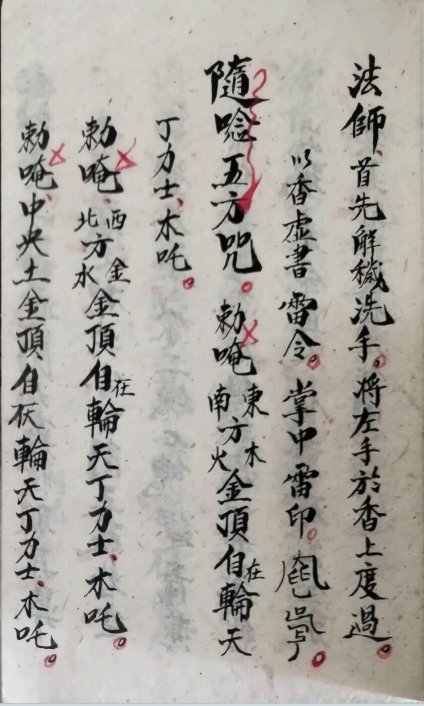 法師首先解穢洗手。将左手於香上度過。
以香虛書雷令。掌中雷印。
隨唸五方咒。勅唵東南方木火金頂自在輪天
丁力士、木吒。
勅唵、西北方金水金頂自在輪天丁力士、木吒。
勅唵、中央土金頂自在輪天丁力士、木吒。